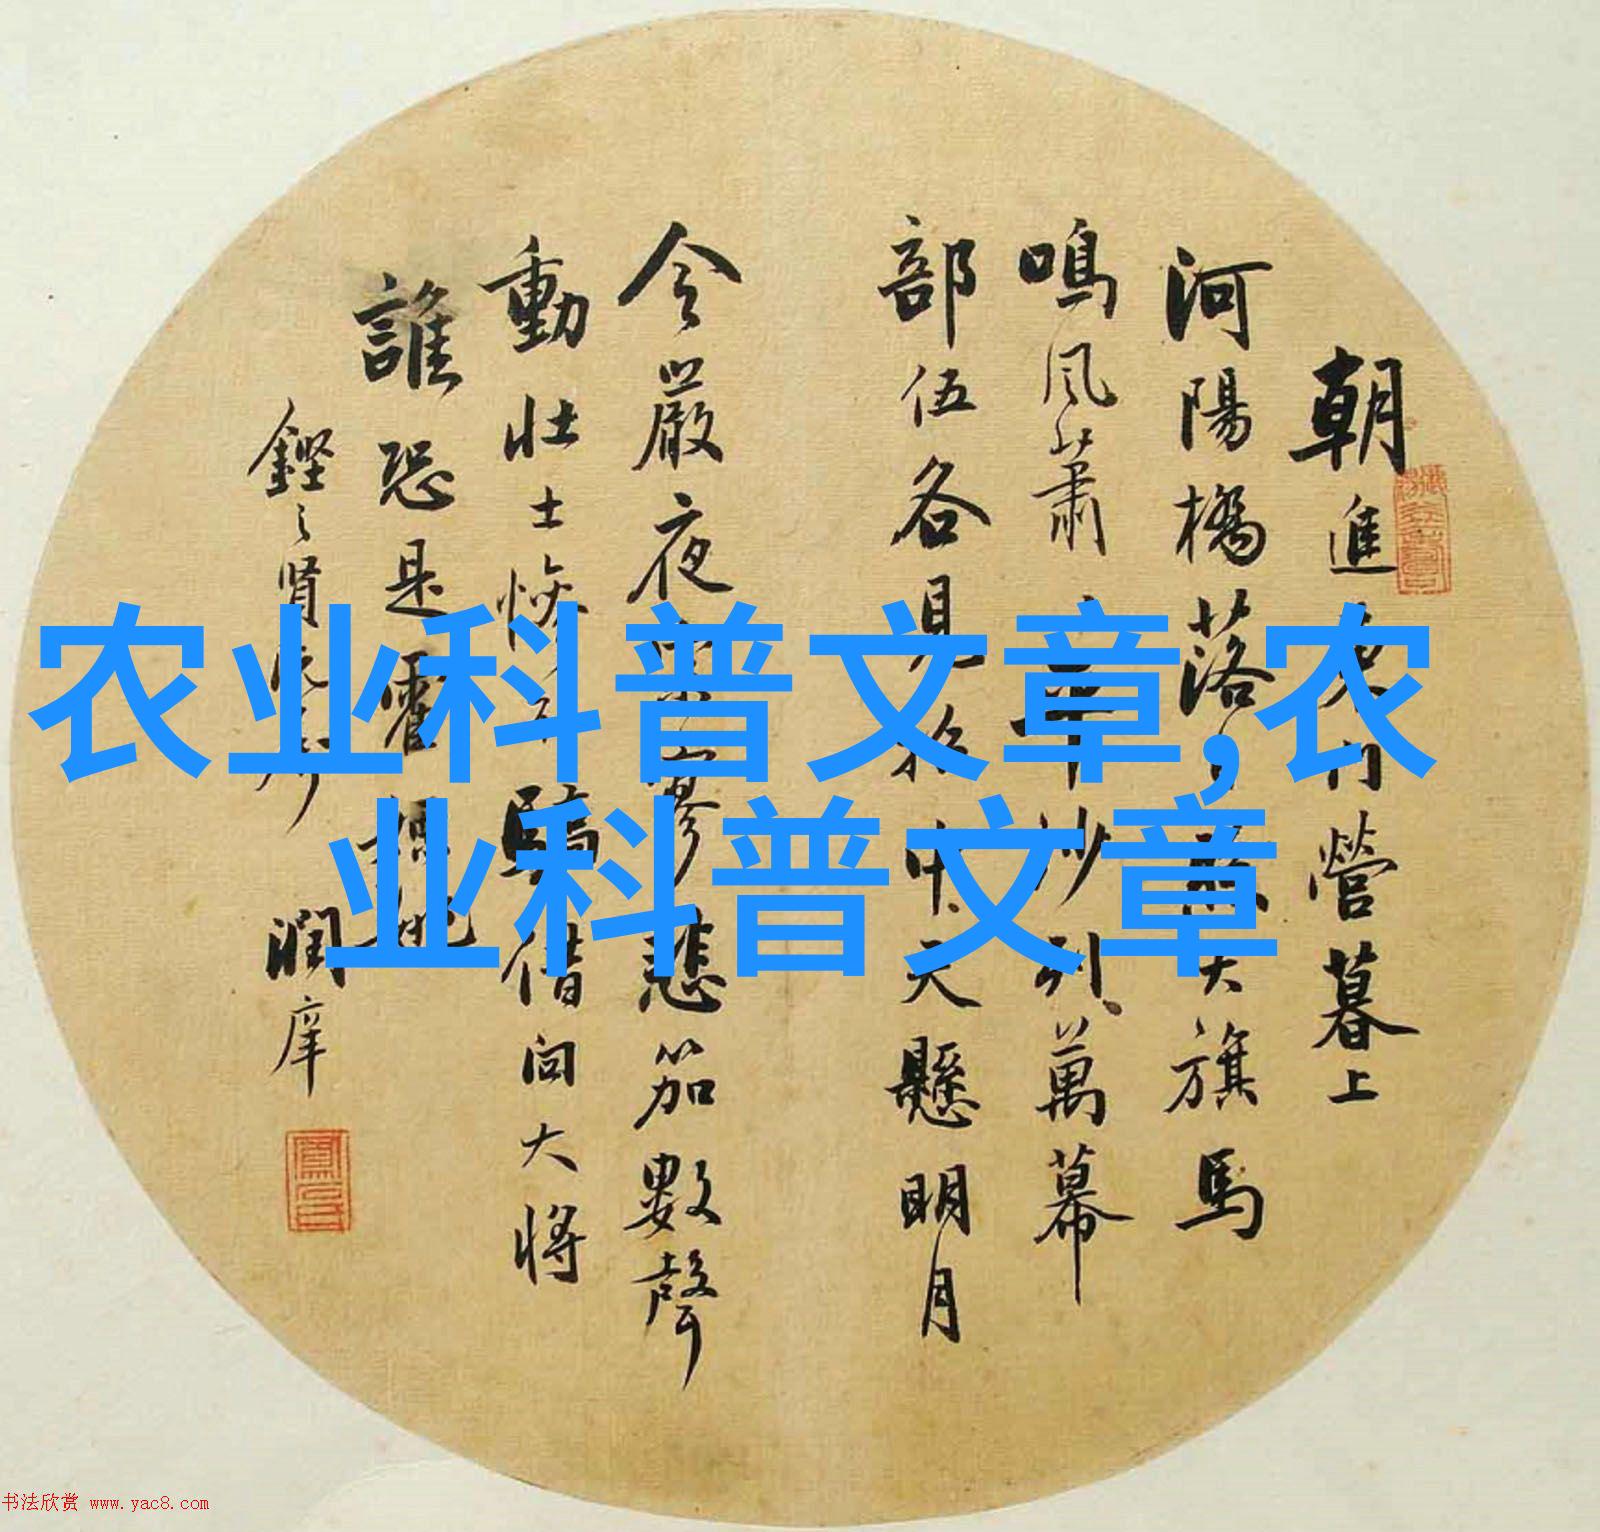 朝進東門營暮上
河陽橋落日照大旗馬
鳴風蕭平沙列萬幕
部伍各見招中天懸明月
令嚴夜寂寥悲笳數聲
動壯士慘不驕借问大將
誰恐是霍嫖姚
潤庠
农业科普文章,农
业科普文章
书法欣赏 www.yac8.com